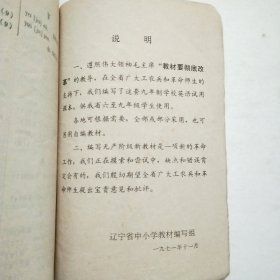 说 明
一、遵照伟大领袖毛主席“教材要彻底改
革”的教导，在全省广大工农兵和革命师生的
支持下，我们编写了这套九年制学校英语试用
课本，供我省六至九年级学生使用。
各地可根据需要，全部或部分采用，也可
另行自编教材。
二、编写无产阶级新教材是一项新的革命
工作，我们正在摸索和尝试中，缺点和错误肯
定会有的，我们殷切期望全省广大工农兵和革
命师生提出宝贵意见和批评。
辽宁省中小学教材编写组
一九七一年十一月